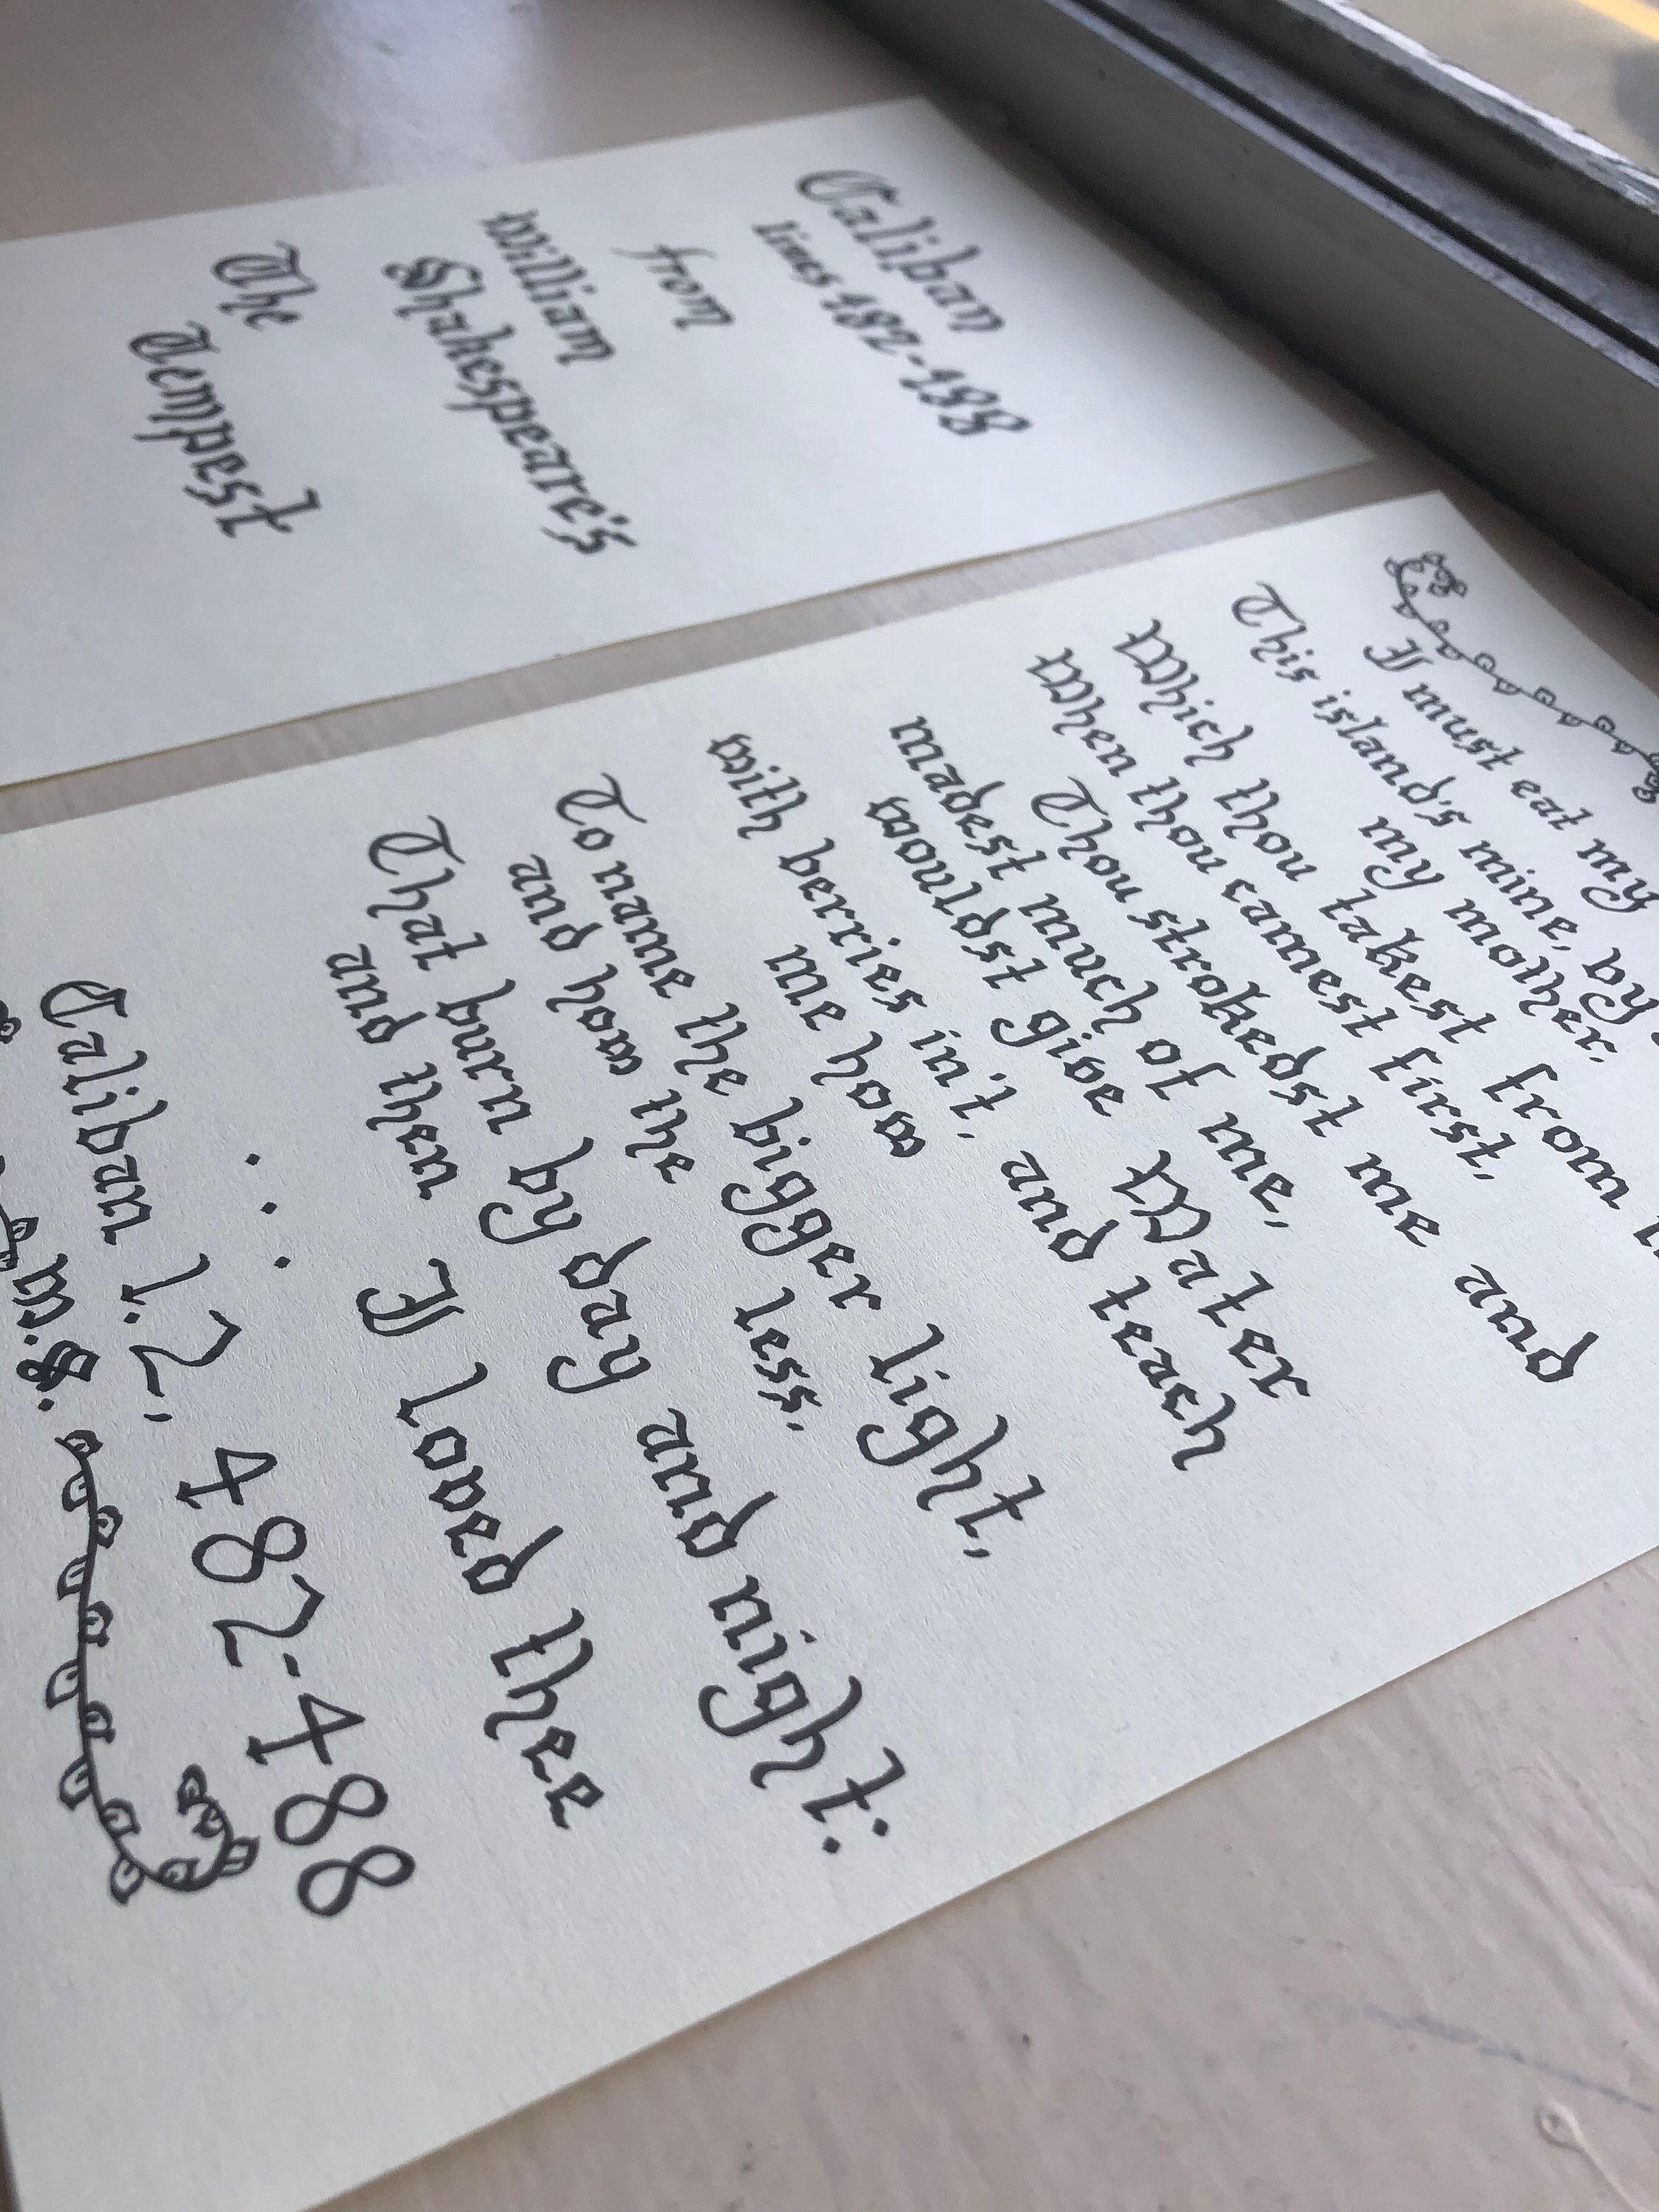 Caliban
lines 482-488
from
William
Shakespeare's
The
Tempest
I must eat my
This island's mine, by
my mother,
Which thou takest from
When thou camest first,
Thou strokedst me and
madest much of me,
wouldst give Water
with berries in't, and teach
me how
To name the bigger light,
and how the less,
That burn by day and night:
and then I loved thee
...
Caliban 1.2, 482-488